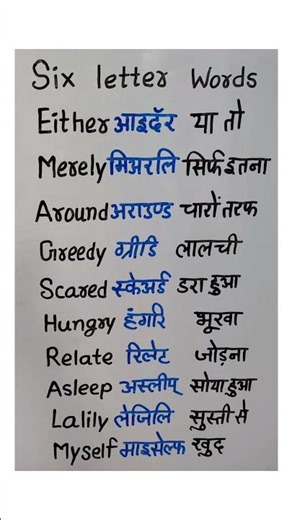 Six letter Words
Either आइदॅर या तो
Merely मिअरलि सिर्फ इतना
Around अराउण्ड चारों तरफ
Greedy ग्रीडि लालची
Scared स्केअर्ड डरा हुआ
Hungry हंगरि भूखा
Relate रिलेट जोड़ना
Asleep अस्लीप् सोया हुआ
Lalily लेजिलि सुस्ती से
Myself माइसेल्फ खुद